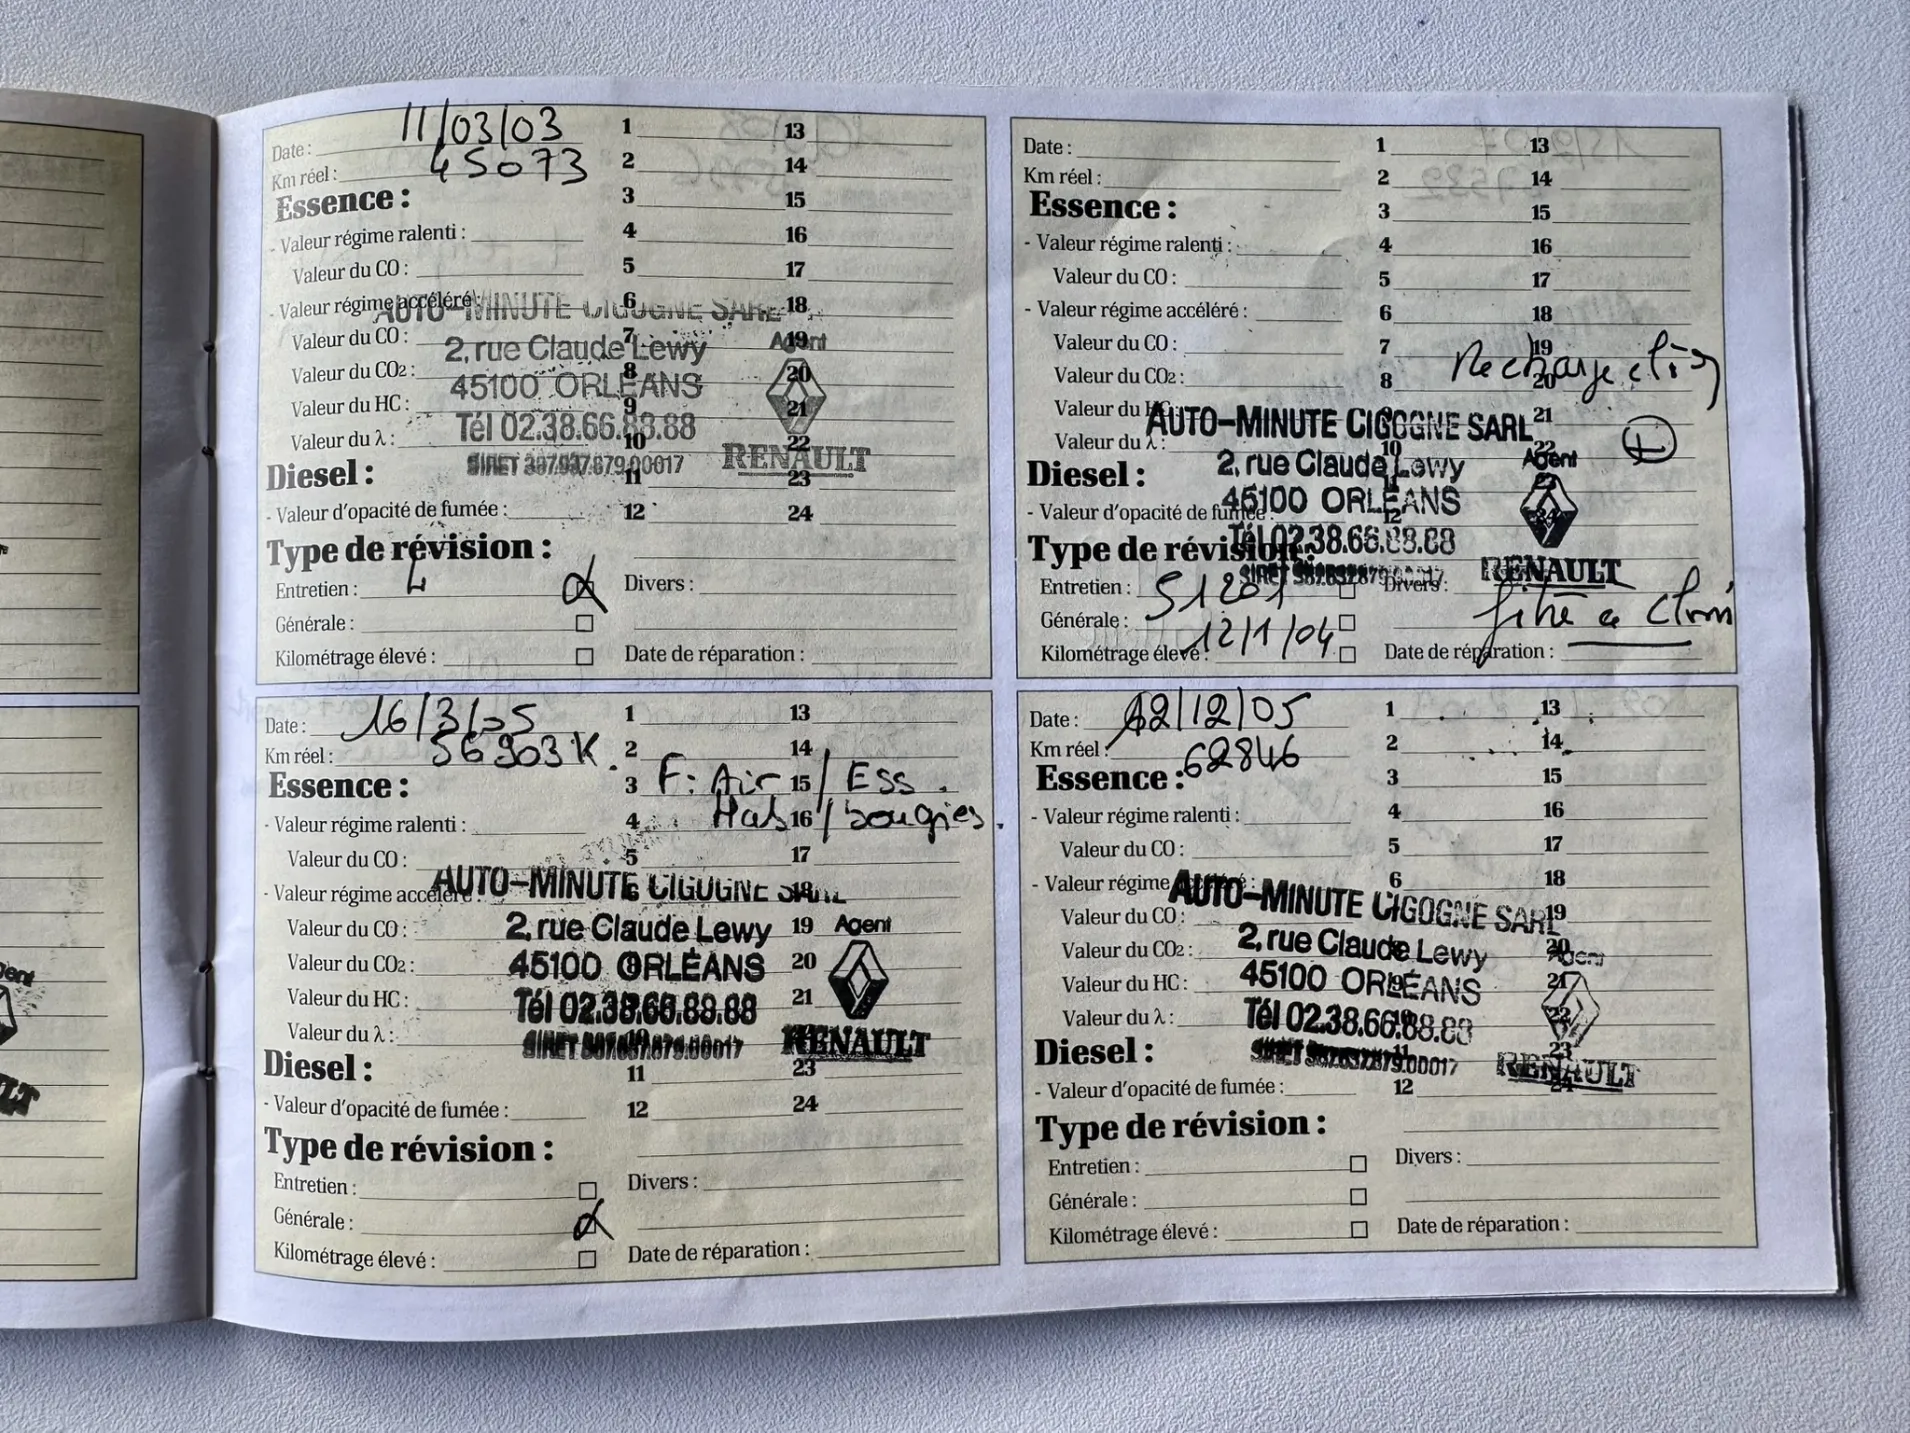 Date : 11/03/03
Km réel : 45073
Essence :
- Valeur régime ralenti :
Valeur du CO :
- Valeur régime accéléré :
Valeur du CO :
Valeur du CO2 :
Valeur du HC :
Valeur du λ :
Diesel :
- Valeur d'opacité de fumée :
Type de révision :
Entretien :
Générale :
Kilométrage élevé :
1 13
2 14
3 15
4 16
5 17
6 18
7 19
8 20
9 21
10 22
11 23
12 24
Divers :
Date de réparation :
AUTO-MINUTE CIGOGNE SARL
2, rue Claude Lewy
45100 ORLÉANS
Tél 02.38.66.88.88
Agent
RENAULT
Date :
Km réel :
Essence :
- Valeur régime ralenti :
Valeur du CO :
- Valeur régime accéléré :
Valeur du CO :
Valeur du CO2 :
Valeur du HC
Valeur du λ :
Diesel :
- Valeur d'opacité de fumée :
Type de révision :
Entretien : 51201
Générale :
12/1/04
Kilométrage élevé :
1 13
2 14
3 15
4 16
5 17
6 18
7 19
8 20
21
22
10
11
23
12
24
Recharge clim
Divers :
filtre a clim
Date de réparation :
AUTO-MINUTE CIGOGNE SARL
2, rue Claude Lewy
45100 ORLÉANS
Tél 02.38.66.88.88
Agent
RENAULT
Date : 16/3/05
Km réel : 56903K.
Essence :
- Valeur régime ralenti :
Valeur du CO :
- Valeur régime accéléré :
Valeur du CO :
Valeur du CO2 :
Valeur du HC :
Valeur du λ :
Diesel :
- Valeur d'opacité de fumée :
Type de révision :
Entretien :
Générale :
Kilométrage élevé :
1 13
2 14
3 15
F: Air / Ess.
4 16
Hab / bougies.
5 17
6 18
19
20
21
10
11 23
12 24
Divers :
Date de réparation :
AUTO-MINUTE CIGOGNE SARL
2, rue Claude Lewy
45100 ORLÉANS
Tél 02.38.66.88.88
Agent
RENAULT
Date : 12/12/05
Km réel : 62846
Essence :
- Valeur régime ralenti :
Valeur du CO :
- Valeur régime accéléré :
Valeur du CO :
Valeur du CO2 :
Valeur du HC :
Valeur du λ :
Diesel :
- Valeur d'opacité de fumée :
Type de révision :
Entretien :
Générale :
Kilométrage élevé :
1 13
2 14
3 15
4 16
5 17
6 18
19
20
21
22
23
12 24
Divers :
Date de réparation :
AUTO-MINUTE CIGOGNE SARL
2, rue Claude Lewy
45100 ORLÉANS
Tél 02.38.66.88.88
Agent
RENAULT